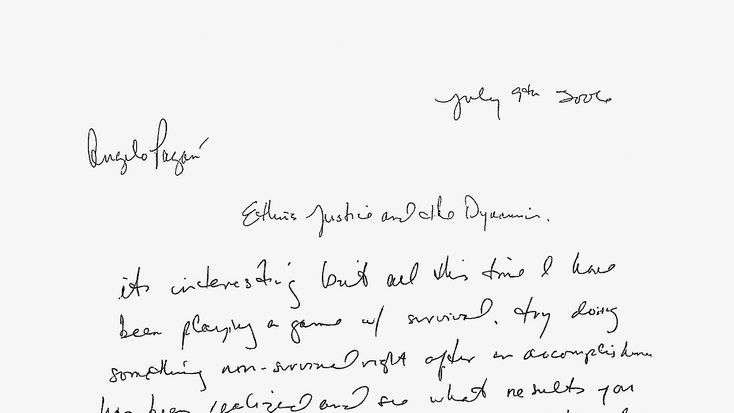 July 9th 2006
Angelo Pagán
Ethics Justice and the Dynamics.
its interesting but all this time I have
been playing a game w/ survival. try doing
something non-survival right after an accomplishment
has been realized and see what results you